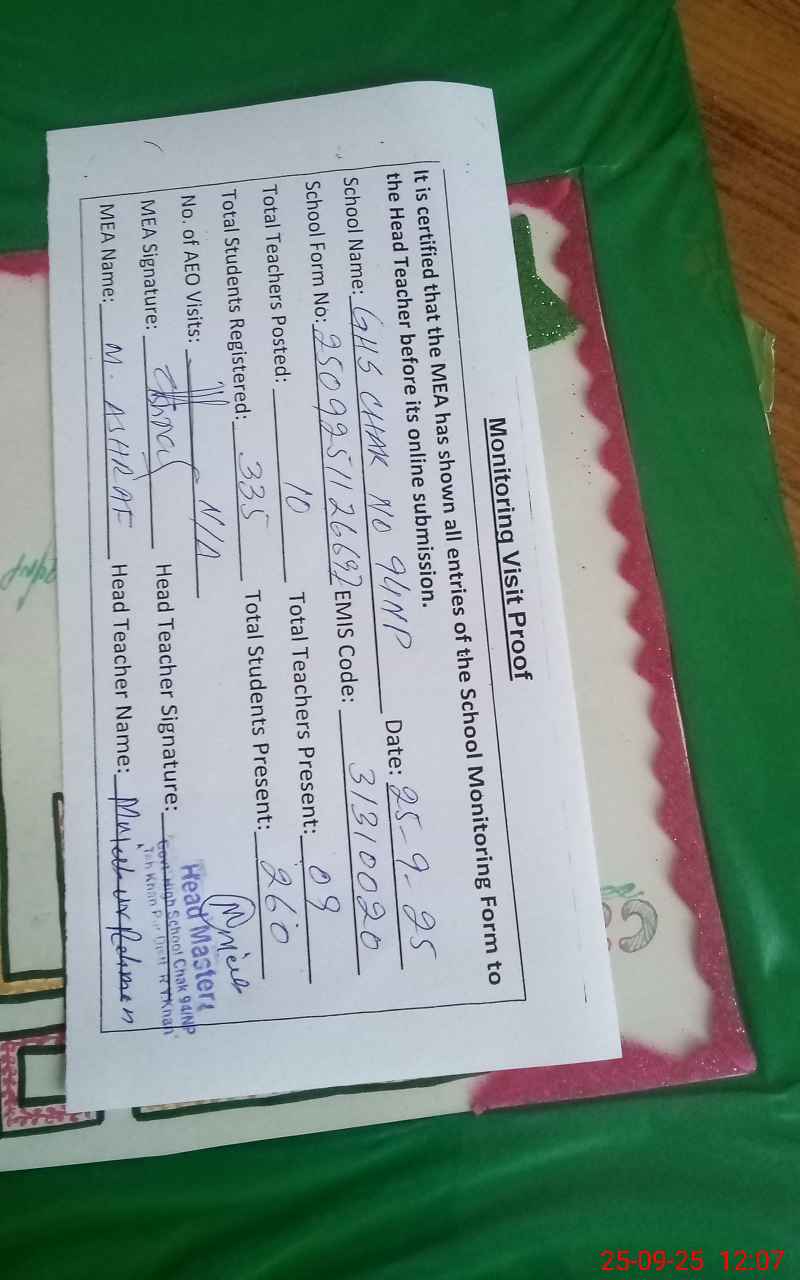 Monitoring Visit Proof
It is certified that the MEA has shown all entries of the School Monitoring Form to
the Head Teacher before its online submission.
School Name: GHS CHAK NO 94NP Date: 25-9-25
School Form No: 2509251126692 EMIS Code: 31310020
Total Teachers Posted: 10 Total Teachers Present: 09
Total Students Registered: 335 Total Students Present: 260
No. of AEO Visits: N/A
MEA Signature: Head Teacher Signature: Mujeeb
Head Master
Govt High School Chak 94/NP
Teh Khan Pur Distt R.Y.Khan
MEA Name: M. ASHRAF Head Teacher Name: Mujeeb ur Rehman
25-09-25 12:07